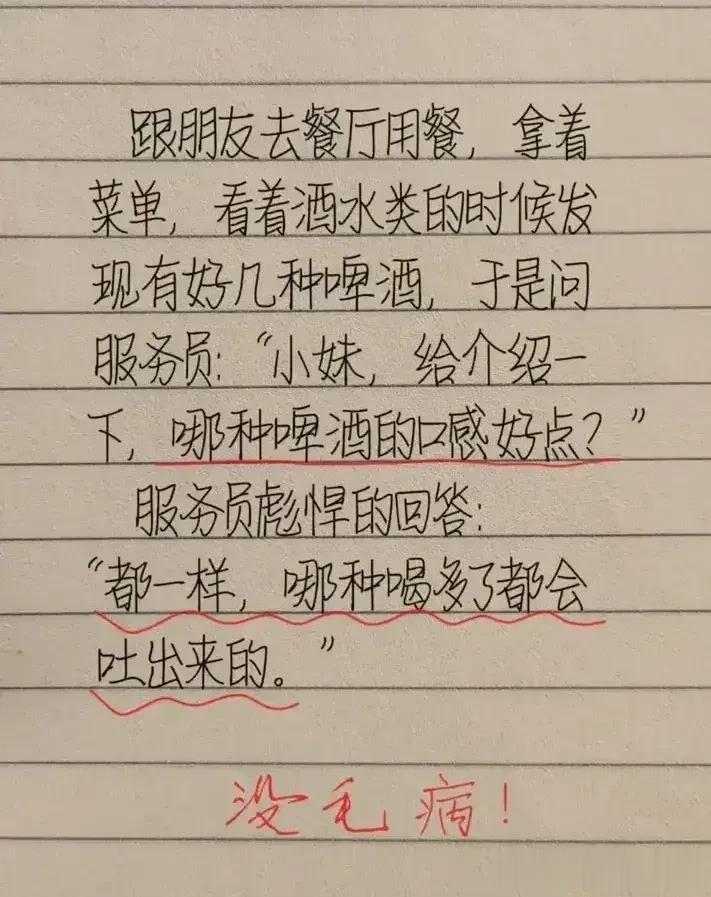 跟朋友去餐厅用餐，拿着
菜单，看着酒水类的时候发
现有好几种啤酒，于是问
服务员：“小妹，给介绍一
下，哪种啤酒的口感好点？”
服务员彪悍的回答：
“都一样，哪种喝多了都会
吐出来的。”
没毛病！